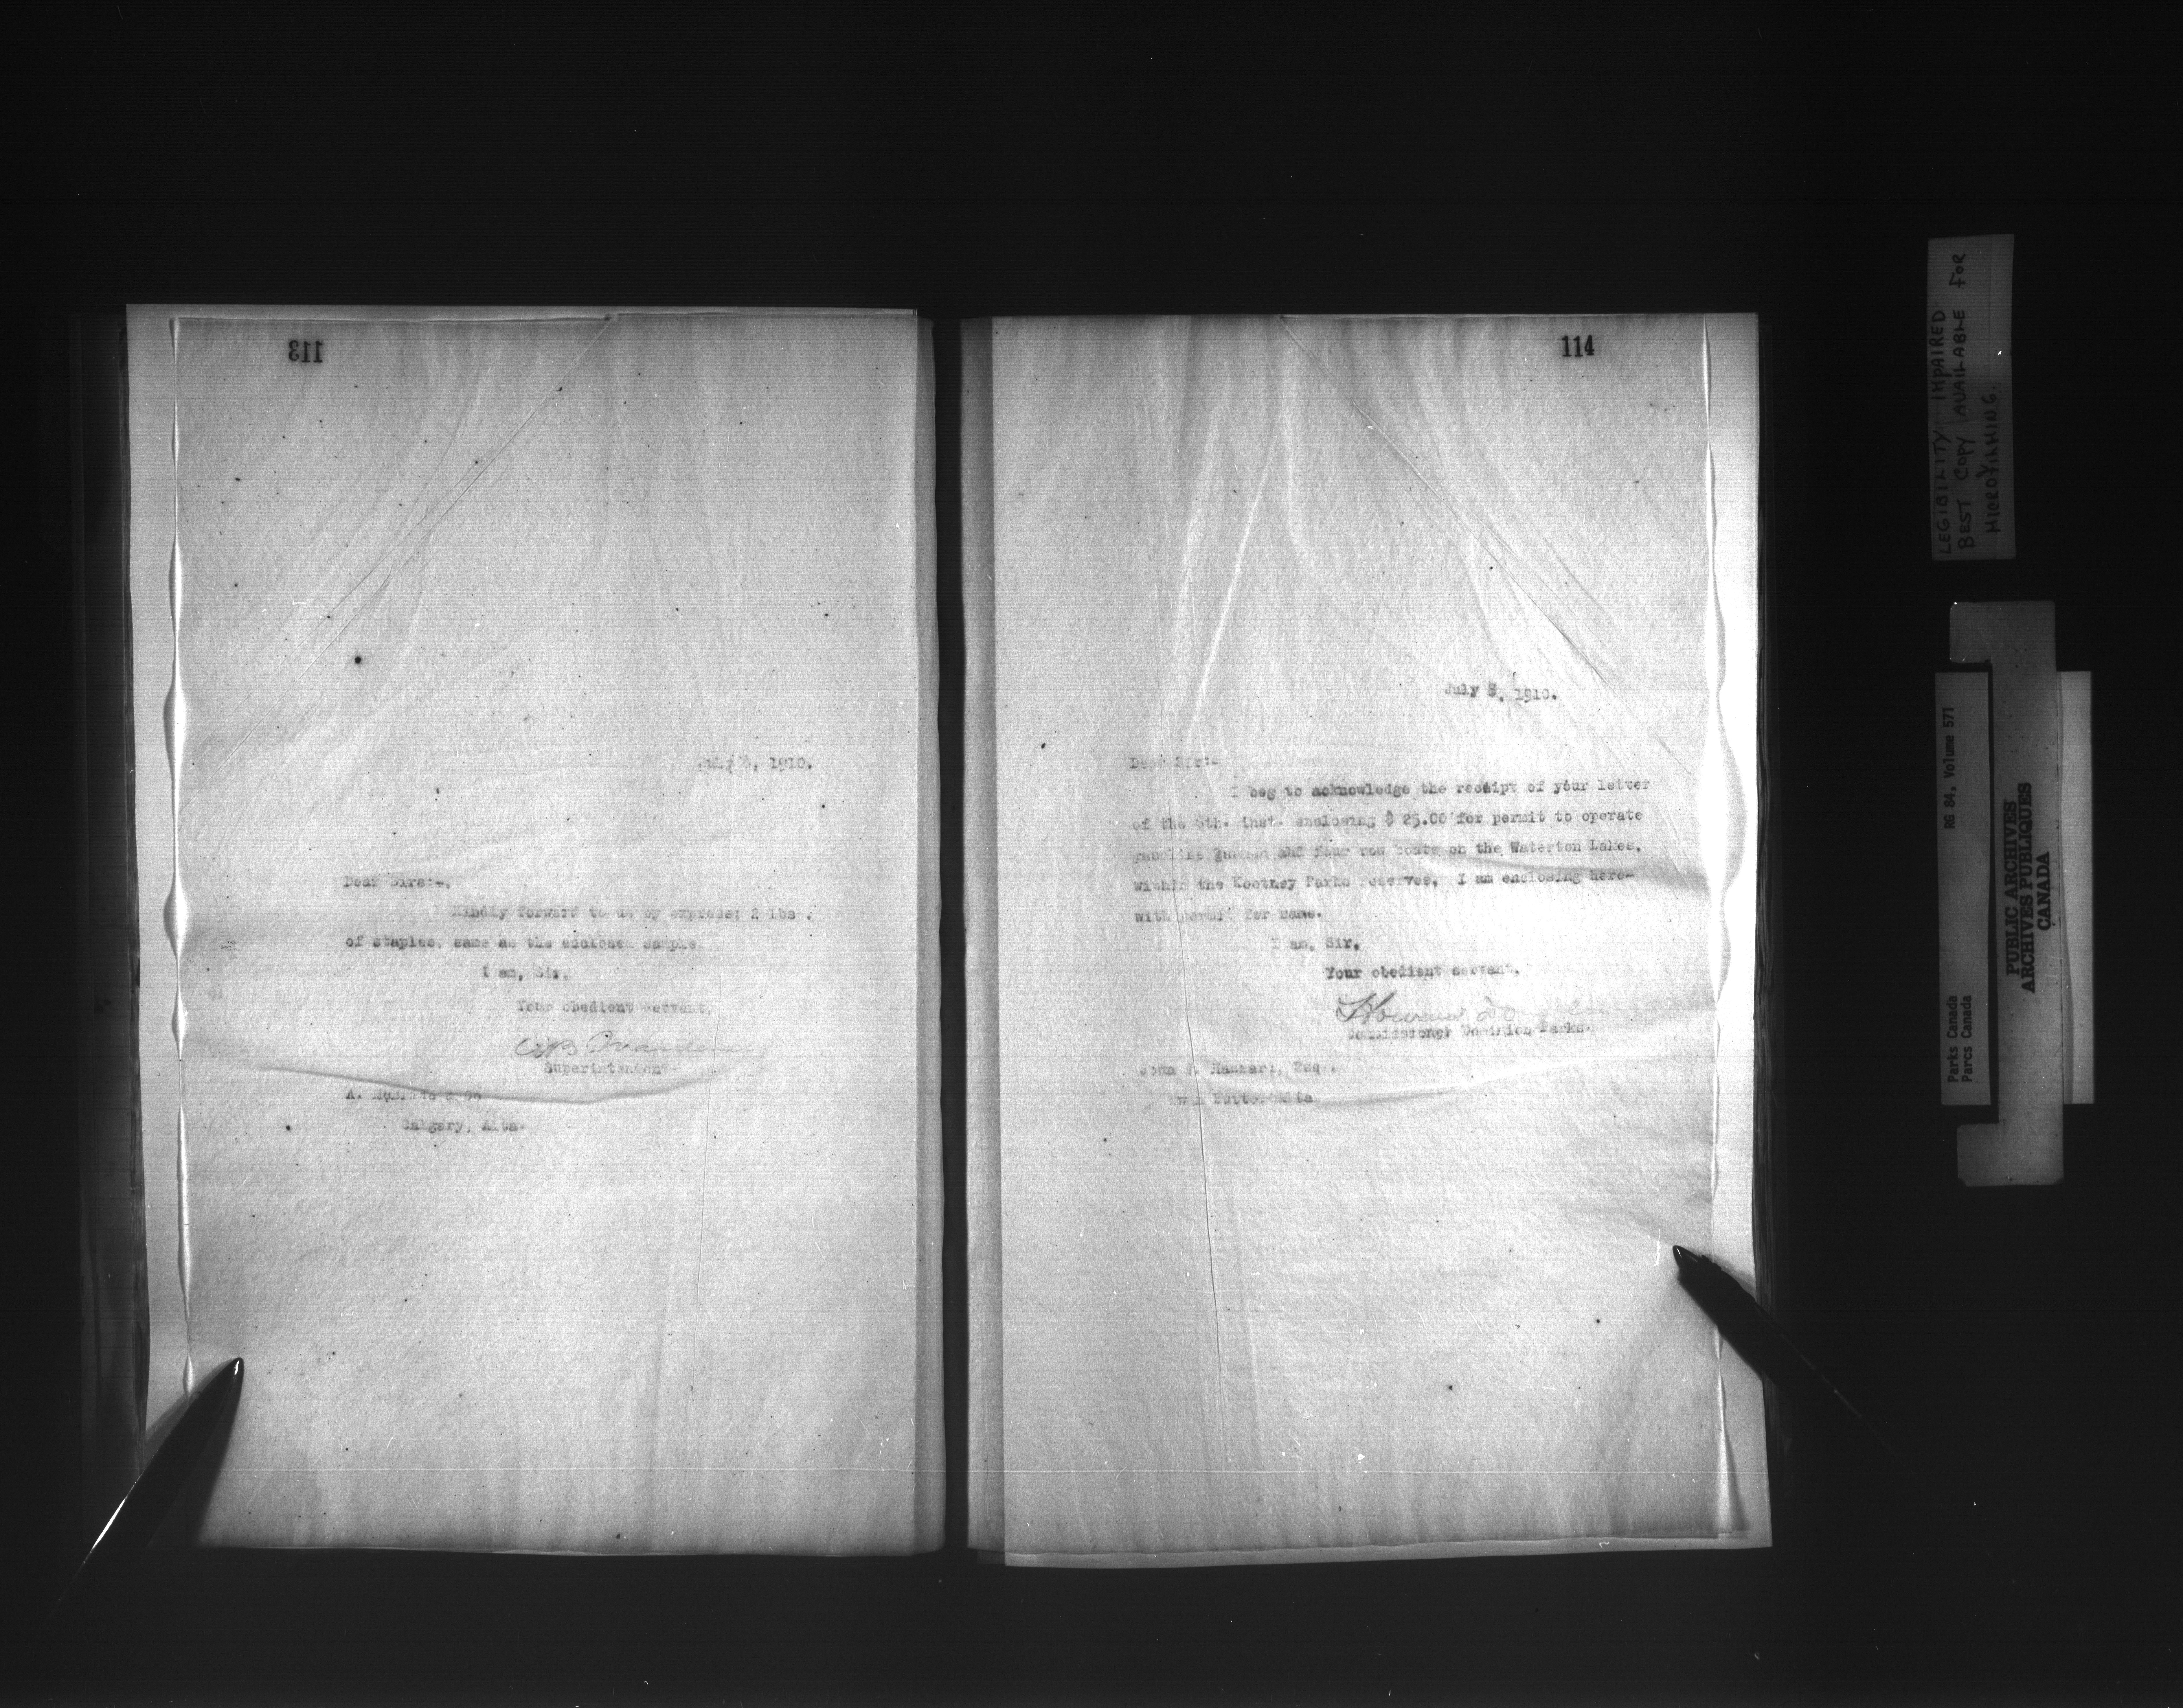 113
July 8, 1910.
Dear Sirs:-,
Kindly forward to us by express; 2 lbs .
of staples, same as the enclosed sample.
I am, Sir,
Your obedient servant,
Superintendent.
A. & Co
Calgary, Alta.
114
July 8, 1910.
Dear Sir:-
I beg to acknowledge the receipt of your letter
of the 5th. inst. enclosing $ 25.00 for permit to operate
gasoline and four row boats on the Waterton Lakes,
within the Kootney Parks reserves. I am enclosing here-
with permit for same.
I am, Sir,
Your obedient servant,
Howard Douglas
Commissioner Dominion Parks.
John F. Hazzard, Esq.
Twin Butte, Alta
LEGIBILITY IMPAIRED
BEST COPY AVAILABLE FOR
MICROFILMING.
RG 84, Volume 571
Parks Canada
Parcs Canada
PUBLIC ARCHIVES
ARCHIVES PUBLIQUES
CANADA